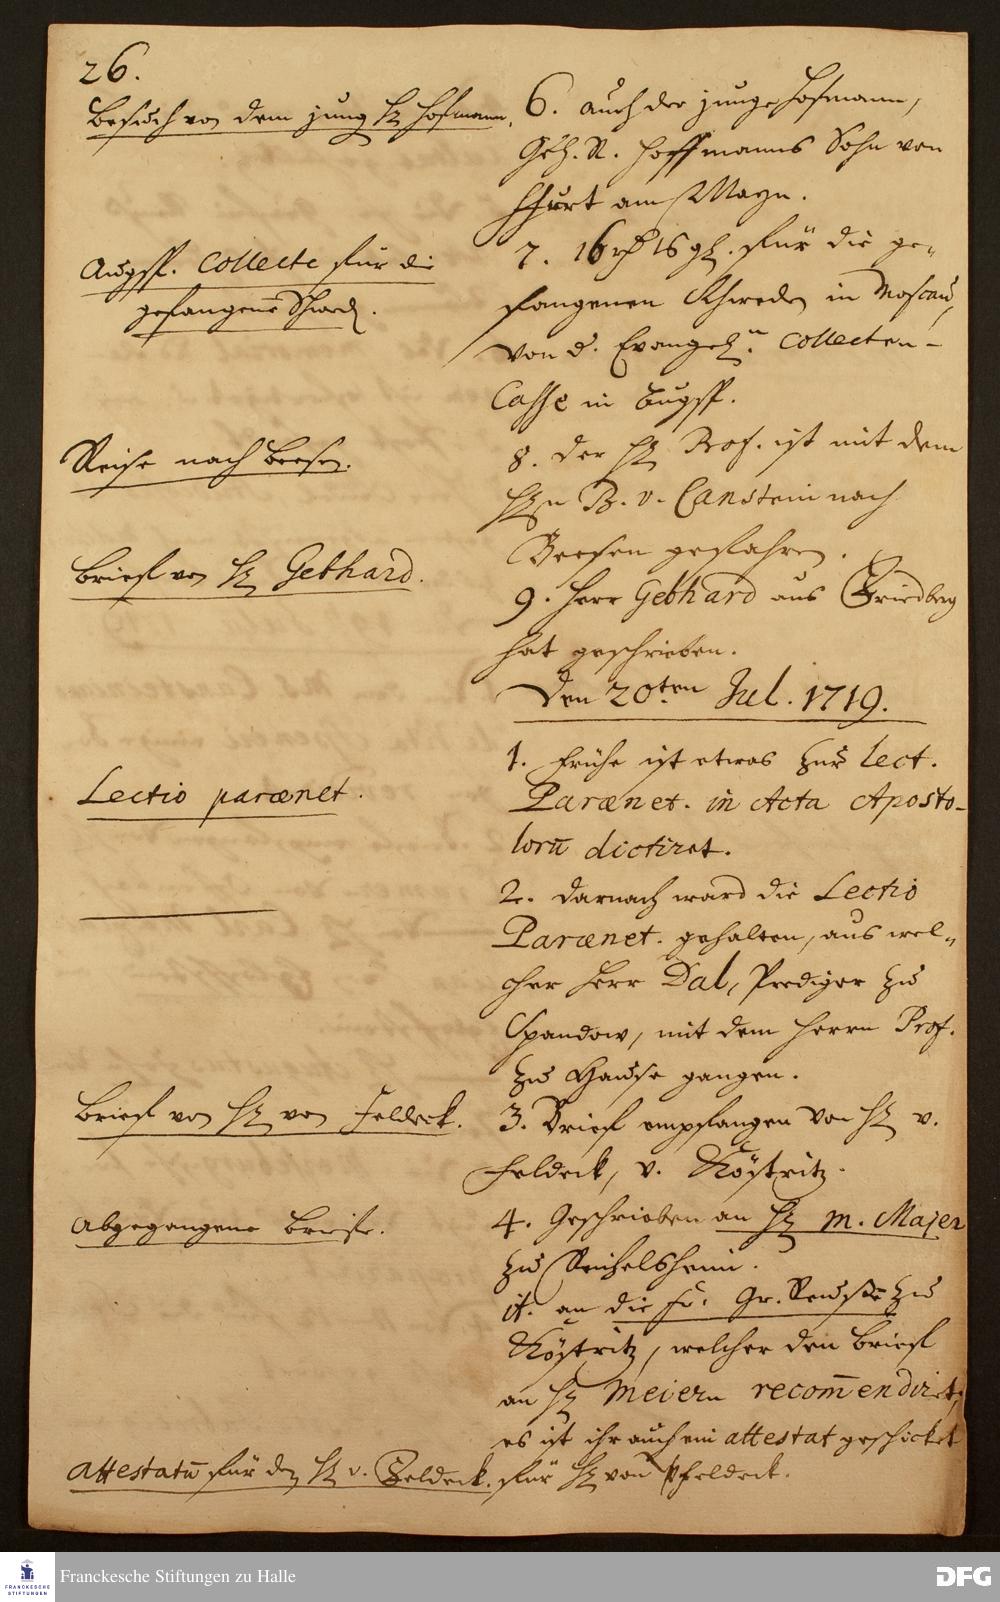 26.
Besuch von dem jung H. Hofmann.
6. auch der junge Hofmann,
Geh. R. Hoffmanns Sohn von
Ffurt am Mayn.
Augsp. Collecte für die
gefangene Schwed.
7. 16 rh 16 gl. für die ge-
fangenen Schweden in Moscau,
von d. Evangel. Collecten-
Casse in Augsp.
Reise nach Beesen.
8. der H. Prof. ist mit dem
Hn B. v. Canstein nach
Beesen gefahren.
Brief von H. Gebhard.
9. Herr Gebhard aus Friedberg
hat geschrieben.
Den 20ten Jul. 1719.
Lectio parænet.
1. Frühe ist etwas zur Lect.
Parænet. in Acta Aposto-
lorū dictiret.
2. darnach ward die Lectio
Parænet. gehalten, aus wel-
cher Herr Dal, Prediger zu
Spandow, mit dem Herrn Prof.
zu Hause gangen.
Brief von H. von Feldeck.
3. Brief empfangen von H. v.
Feldeck, v. Köstritz.
Abgegangene Briefe.
4. Geschrieben an H. M. Majer
zu Reichelsheim.
it. an die Fr. Gr. Reussin zu
Köstritz, welcher den Brief
an H. Meiern recom̄endiret,
es ist ihr auch ein attestat geschicket
attestatū für den H. v. Feldeck.
für H. von Feldeck.
Franckesche Stiftungen zu Halle
FRANCKESCHE
STIFTUNGEN
DFG